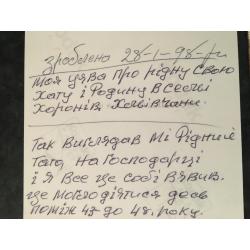 зроблена 28-1-98-р.
Моя уява про рідну свою
хату і Родину в Селі
Хоронів
Так виглядав Мі Рідний
Тато, на господарці
і я Все це собі Вявив.
це могло діятися десь
поміж 43 до 48. року.